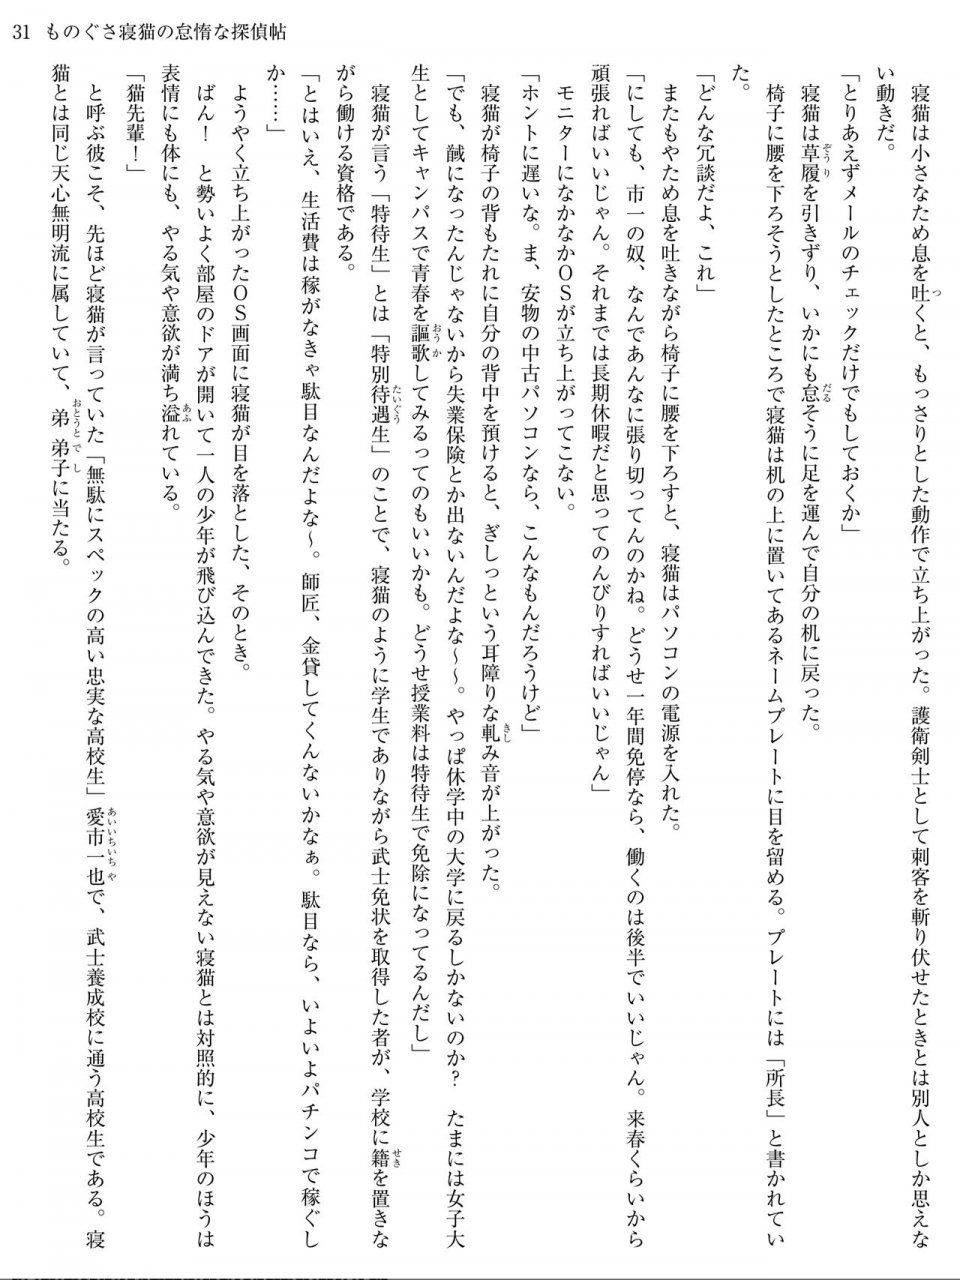 31 ものぐさ寝猫の怠惰な探偵帖
　寝猫は小さなため息を吐くと、もっさりとした動作で立ち上がった。護衛剣士として刺客を斬り伏せたときとは別人としか思えな
い動きだ。
「とりあえずメールのチェックだけでもしておくか」
　寝猫は草履を引きずり、いかにも怠そうに足を運んで自分の机に戻った。
　椅子に腰を下ろそうとしたところで寝猫は机の上に置いてあるネームプレートに目を留める。プレートには「所長」と書かれてい
た。
「どんな冗談だよ、これ」
　またもやため息を吐きながら椅子に腰を下ろすと、寝猫はパソコンの電源を入れた。
「にしても、市一の奴、なんであんなに張り切ってんのかね。どうせ一年間免停なら、働くのは後半でいいじゃん。来春くらいから
頑張ればいいじゃん。それまでは長期休暇だと思ってのんびりすればいいじゃん」
　モニターになかなかＯＳが立ち上がってこない。
「ホントに遅いな。ま、安物の中古パソコンなら、こんなもんだろうけど」
　寝猫が椅子の背もたれに自分の背中を預けると、ぎしっという耳障りな軋み音が上がった。
「でも、馘になったんじゃないから失業保険とか出ないんだよな～～。やっぱ休学中の大学に戻るしかないのか？　たまには女子大
生としてキャンパスで青春を謳歌してみるってのもいいかも。どうせ授業料は特待生で免除になってるんだし」
　寝猫が言う「特待生」とは「特別待遇生」のことで、寝猫のように学生でありながら武士免状を取得した者が、学校に籍を置きな
がら働ける資格である。
「とはいえ、生活費は稼がなきゃ駄目なんだよな～。師匠、金貸してくんないかなぁ。駄目なら、いよいよパチンコで稼ぐし
か……」
　ようやく立ち上がったＯＳ画面に寝猫が目を落とした、そのとき。
　ばん！　と勢いよく部屋のドアが開いて一人の少年が飛び込んできた。やる気や意欲が見えない寝猫とは対照的に、少年のほうは
表情にも体にも、やる気や意欲が満ち溢れている。
「猫先輩！」
　と呼ぶ彼こそ、先ほど寝猫が言っていた「無駄にスペックの高い忠実な高校生」愛市一也で、武士養成校に通う高校生である。寝
猫とは同じ天心無明流に属していて、弟弟子に当たる。